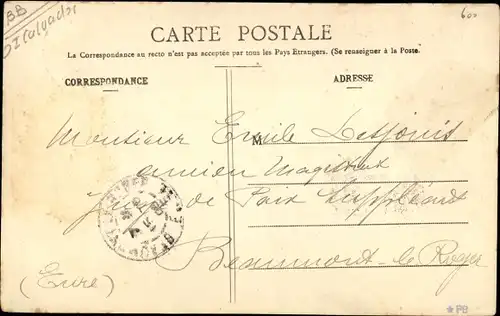 BB
600
CARTE POSTALE
La Correspondance au recto n'est pas acceptée par tous les Pays Etrangers. (Se renseigner à la Poste.
CORRESPONDANCE
ADRESSE
M
Monsieur Emile
ancien Magistrat
Juge de Paix Suppléant
Beaumont-le Roger
(Eure)
*PB